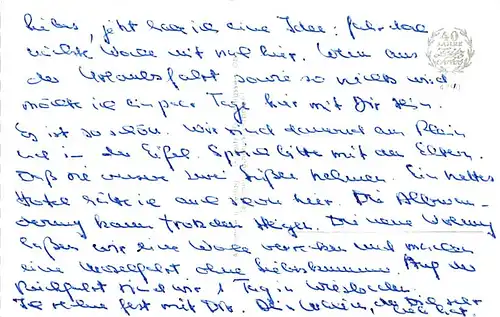 Liebes, jetzt hab ich eine Idee: fahr doch
nächste Woche mit nach hier. Wenn aus
der Urlaubsfahrt sowieso nichts wird
möchte ich ein paar Tage hier mit Dir sein.
Es ist so schön. Wir sind dauernd am Rhein
und in der Eifel. Sprich bitte mit den Eltern.
Daß sie unsere zwei Süßen nehmen. Ein nettes
Hotel hätte ich auch schon hier. Die
kann trotzdem steigen. Die neue Wohnung
lassen wir eine Woche verstreichen und machen
eine Moselfahrt ohne Liebeskummer. Auf der
Rückfahrt sind wir 1 Tag in Wiesbaden.
Ich rechne fest mit Dir. Dein der Dich sehr
lieb hat.
40
JAHRE